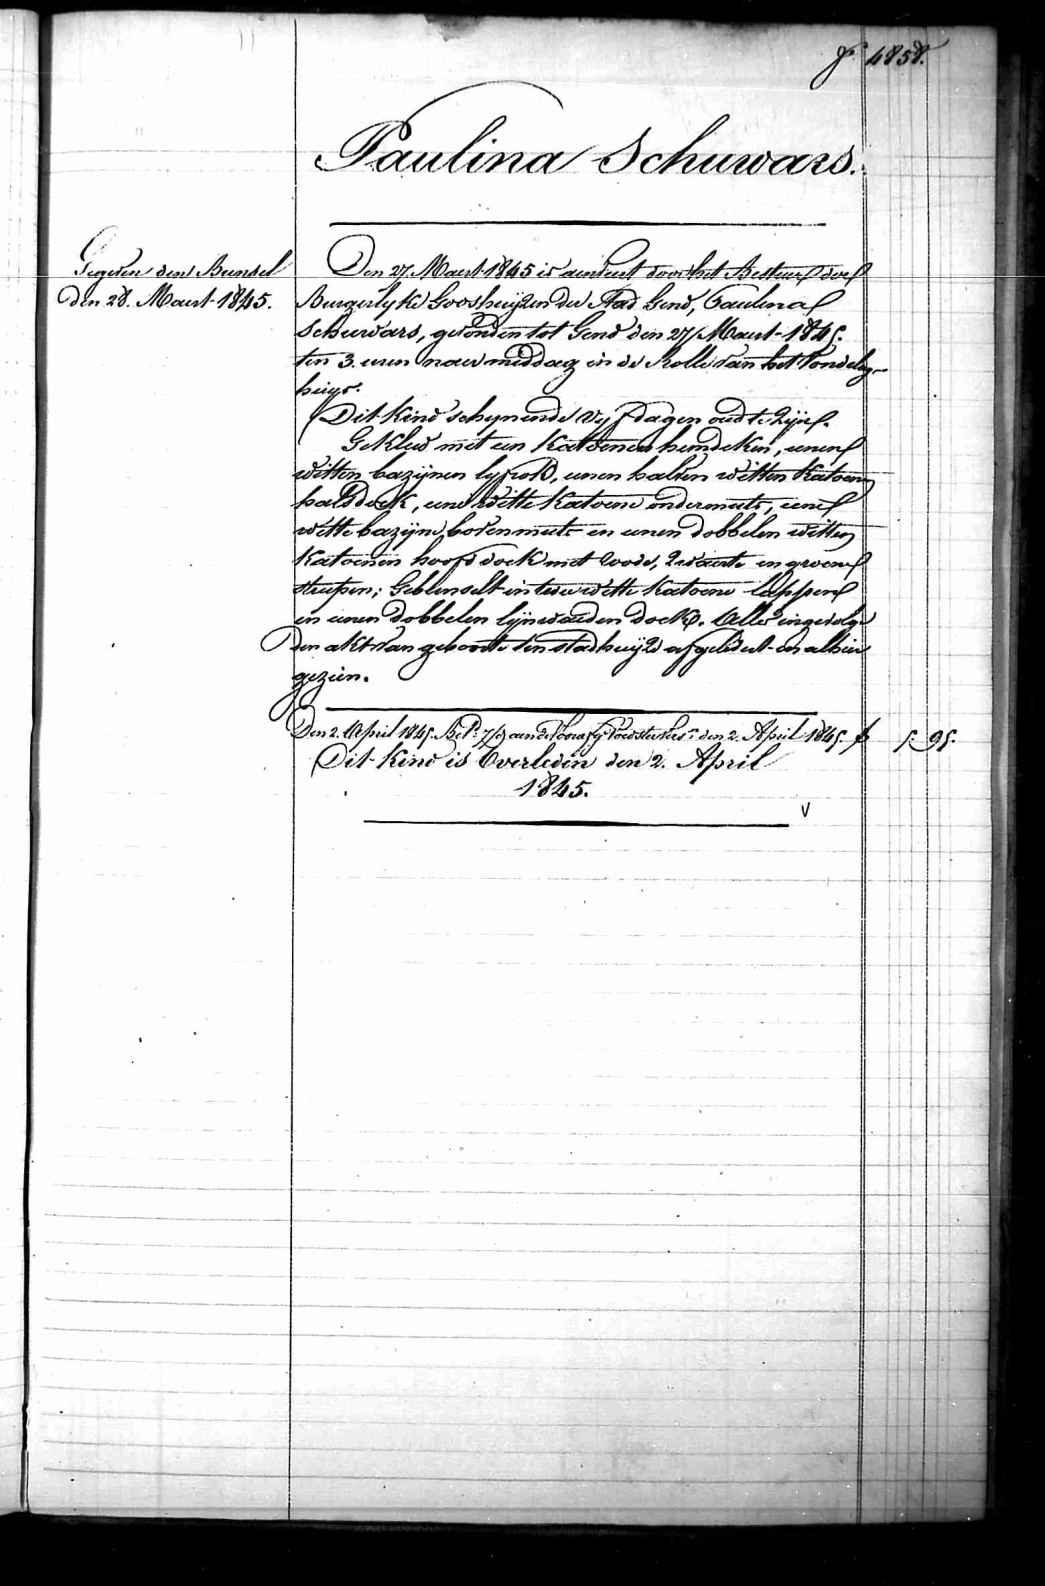 f° 4858.
Paulina Schuwars.
Gegeven den Bundel
den 28. Maart 1845.
Den 27. Maart 1845 is aenveert door het Bestuer der
Burgerlyke Godshuijzen der Stad Gend, Paulina
Schuwars, gevonden tot Gend den 27 Maart 1845.
ten 3. uren naer middag in de Rolle van het Vondelig-
huijs.
Dit kind schynende vyf dagen oud te zijn.
Gekleed met een katoenen hemdeken, eenen
witten bazijnen lyfrok, eenen halven witten katoenen
halsdoek, eene witte katoene ondermuts, eene
witte bazijne bovenmuts en eenen dobbelen witten
katoenen hoofddoek met roode, zwarte en groene
strepen; Gebunselt in twee witte katoene lappen
en eenen dobbelen lijnwaeden doek. Alles ingevolge
den akt van geboorte ten stadhuijze afgeleverd en alhier
gezien.
Den 2. April 1845. Bet. aen de Voedsters den 2. April 1845. f 5. 95.
Dit kind is Overleden den 2. April
1845.
V